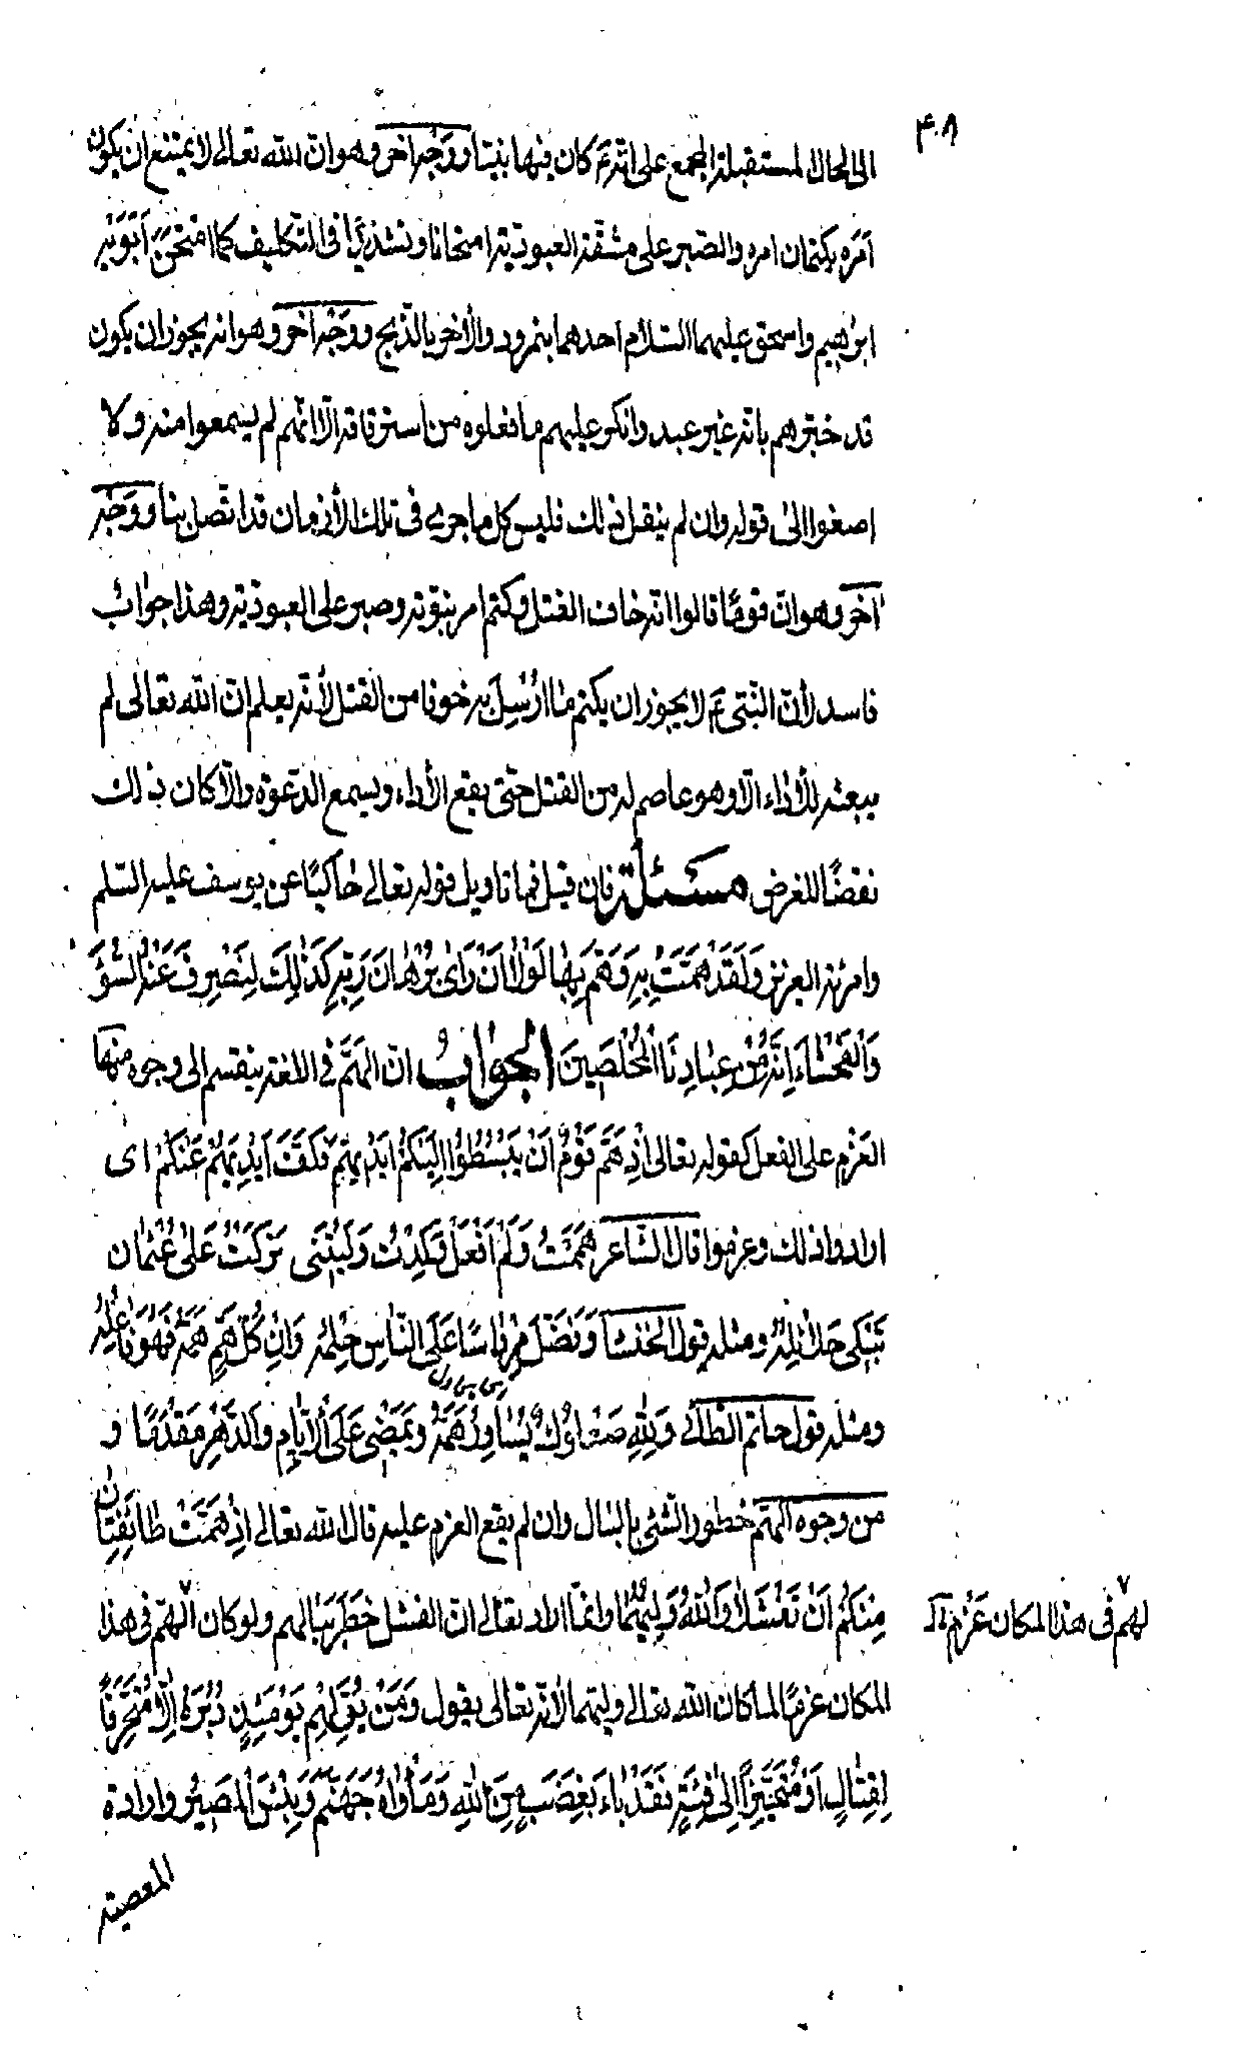 ٣٠٨
الى الحال المستقبلة المجمع على انه ع كان فيها نبيا ووجه اخر وهو ان الله تعالى لا يمتنع ان يكون
امره بكتمان امره والصبر على مشقة العبودية امتحانا وتشديدا فى التكليف كما امتحن ابويه
ابرهيم واسحق عليهما السلام احدهما بنمرود والاخر بالذبح ووجه اخر وهو انه يجوز ان يكون
قد خبرهم بانه غير عبد وانكر عليهم ما فعلوه من استرقاقه الا انهم لم يسمعوا منه ولا
اصغوا الى قوله وان لم ينقل ذلك فليس كل ما جرى فى تلك الأزمان قد اتصل بنا ووجه
اخر وهو ان قوما قالوا انه خاف القتل وكتم امر نبوته وصبر على العبودية وهذا جواب
فاسد لأن النبى ع لا يجوز ان يكتم ما ارسل به خوفا من القتل لأنه يعلم ان الله تعالى لم
يبعثه للأداء الا وهو عاصم له من القتل حتى يقع الأداء ويسمع الدعوة والا كان ذلك
نقضا للغرض مسئلة فان قيل فما تاويل قوله تعالى حاكيا عن يوسف عليه السلم
وامرئة العزيز وَلَقَدْ هَمَّتْ بِهِ وَهَمَّ بِهَا لَوْلَا اَنْ رَاى بُرْهَانَ رَبِّهِ كَذٰلِكَ لِنَصْرِفَ عَنْهُ السُّوءَ
وَالْفَحْشَاءَ اِنَّهُ مِنْ عِبَادِنَا الْمُخْلَصِينَ الجواب ان الهَمَّ فى اللغة ينقسم الى وجوه منها
العزم على الفعل كقوله تعالى اِذْ هَمَّ قَوْمٌ اَنْ يَبْسُطُوا اِلَيْكُمْ اَيْدِيَهُمْ فَكَفَّ اَيْدِيَهُمْ عَنْكُمْ اى
ارادوا ذلك وعزموا قال الشاعر هَمَمْتُ وَلَمْ اَفْعَلْ وَكِدْتُ وَلَيْتَنِى تَرَكْتُ عَلٰى عُثْمَانَ
تَبْكِى حَلَائِلُهُ ومثله قول الخنسا وَفَضَّلَ مِرْدَاسًا عَلَى النَّاسِ حِلْمُهُ وَاِنْ كُلُّ هَمٍّ هَمَّهُ فَهُوَ فَاعِلُهُ
ومثله قول حاتم الطائى وَلِلّٰهِ صُعْلُوكٌ يُسَاوِرُ هَمَّهُ وَيَمْضِى عَلَى الْاَيَّامِ وَالدَّهْرِ مُقْدِمًا و
من وجوه الهم خطور الشئ بالبال وان لم يقع العزم عليه قال الله تعالى اِذْ هَمَّتْ طَائِفَتَانِ
مِنْكُمْ اَنْ تَفْشَلَا وَاللهُ وَلِيُّهُمَا وانما اراد تعالى ان الفشل خطر ببالهم ولو كان الهم فى هذا
لهم فى هذا المكان عزم
المكان عزما لما كان الله تعالى وليهما لأنه تعالى يقول وَمَنْ يُوَلِّهِمْ يَوْمَئِذٍ دُبُرَهُ اِلَّا مُتَحَرِّفًا
لِقِتَالٍ اَوْ مُتَحَيِّزًا اِلٰى فِئَةٍ فَقَدْ بَاءَ بِغَضَبٍ مِنَ اللهِ وَمَأْوٰاهُ جَهَنَّمُ وَبِئْسَ الْمَصِيرُ وارادة
المعصية